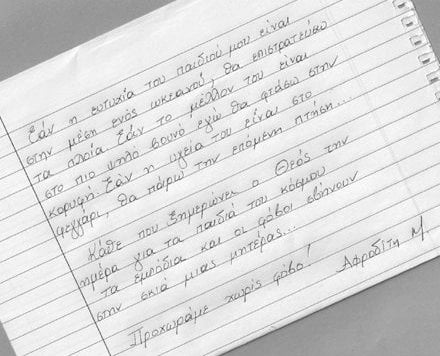 Εάν η ευτυχία του παιδιού μου είναι
στην μέση ενός ωκεανού, θα επιστρατεύσω
τα πλοία. Εάν το μέλλον του είναι
στο πιο ψηλό βουνό εγώ θα φτάσω στην
κορυφή. Εάν η υγεία του είναι στο
φεγγάρι, θα πάρω την επόμενη πτήση...
Κάθε που ξημερώνει ο Θεός την
ημέρα για τα παιδιά του κόσμου
τα εμπόδια και οι φόβοι σβήνουν
στην σκιά μιας μητέρας...
Προχωράμε χωρίς φόβο!
Αφροδίτη Μ.